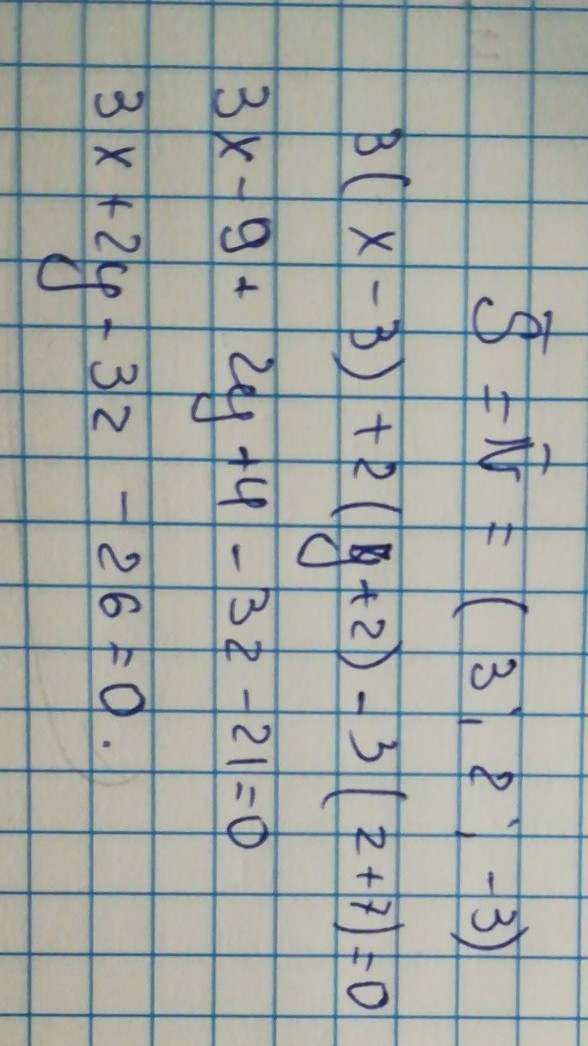 S̄ = N̄ = (3; 2; -3)
3(x-3)+2(y+2)-3(z+7)=0
3x-9+2y+4-3z-21=0
3x+2y-3z-26=0.